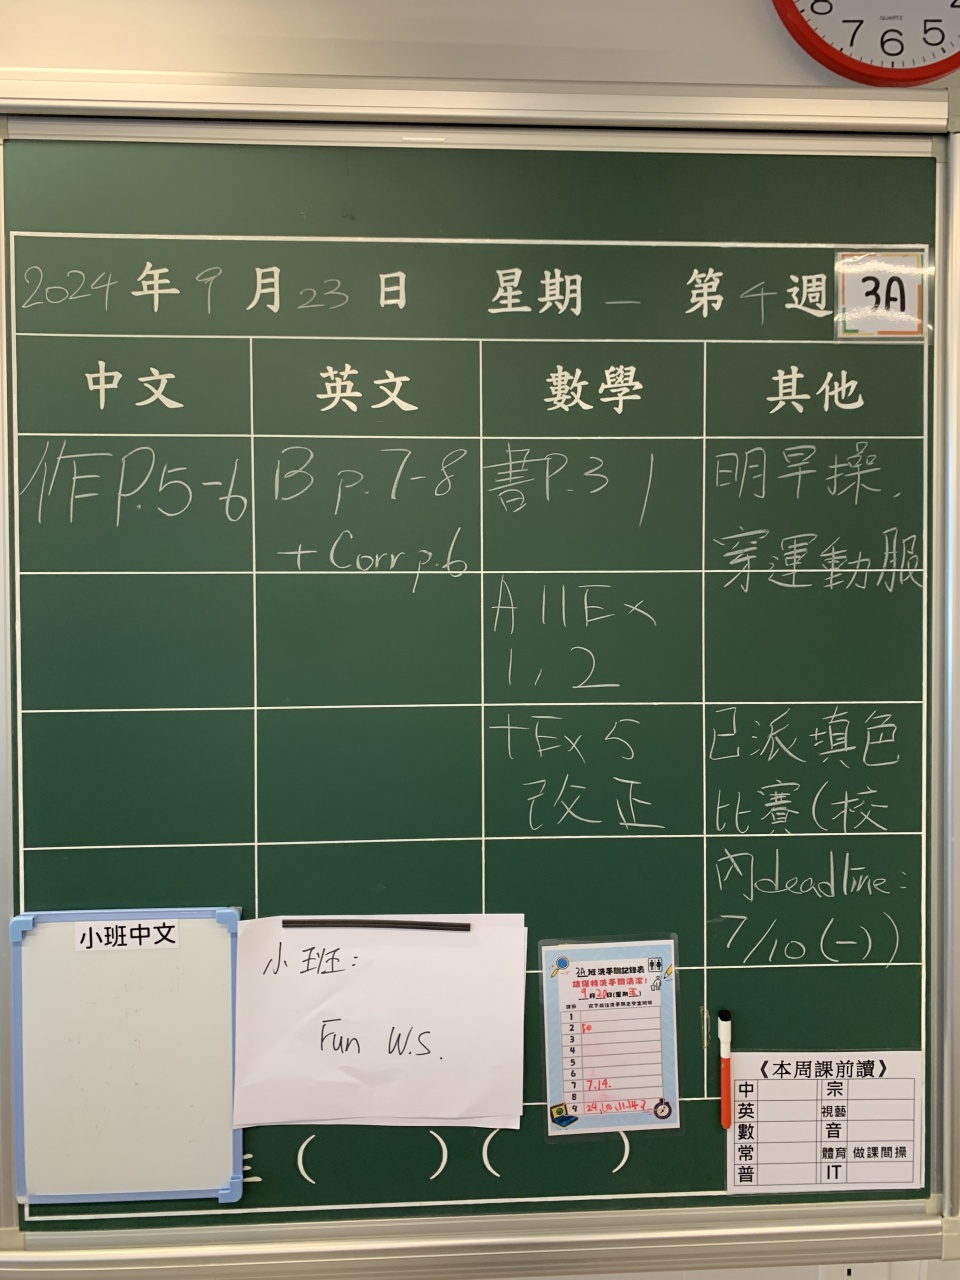 8 QUARTZ 4
7 6 5
2024年9月23日 星期一 第4週 3A
中文 英文 數學 其他
作P.5-6
B p.7-8
+Corr p.6
書P.31
A11Ex
1,2
+Ex 5
改正
明早操,
穿運動服
已派填色
比賽(校
內deadline:
7/10(一))
小班中文
小班:
Fun W.S.
3A班洗手間記錄表
請保持洗手間清潔!
9月20日(星期五)
1
2 50
3
4
5
6
7 7.14.
8
9
《本周課前讀》
中 宗
英 視藝
數 音
常 體育 做課間操
普 IT
( ) ( )